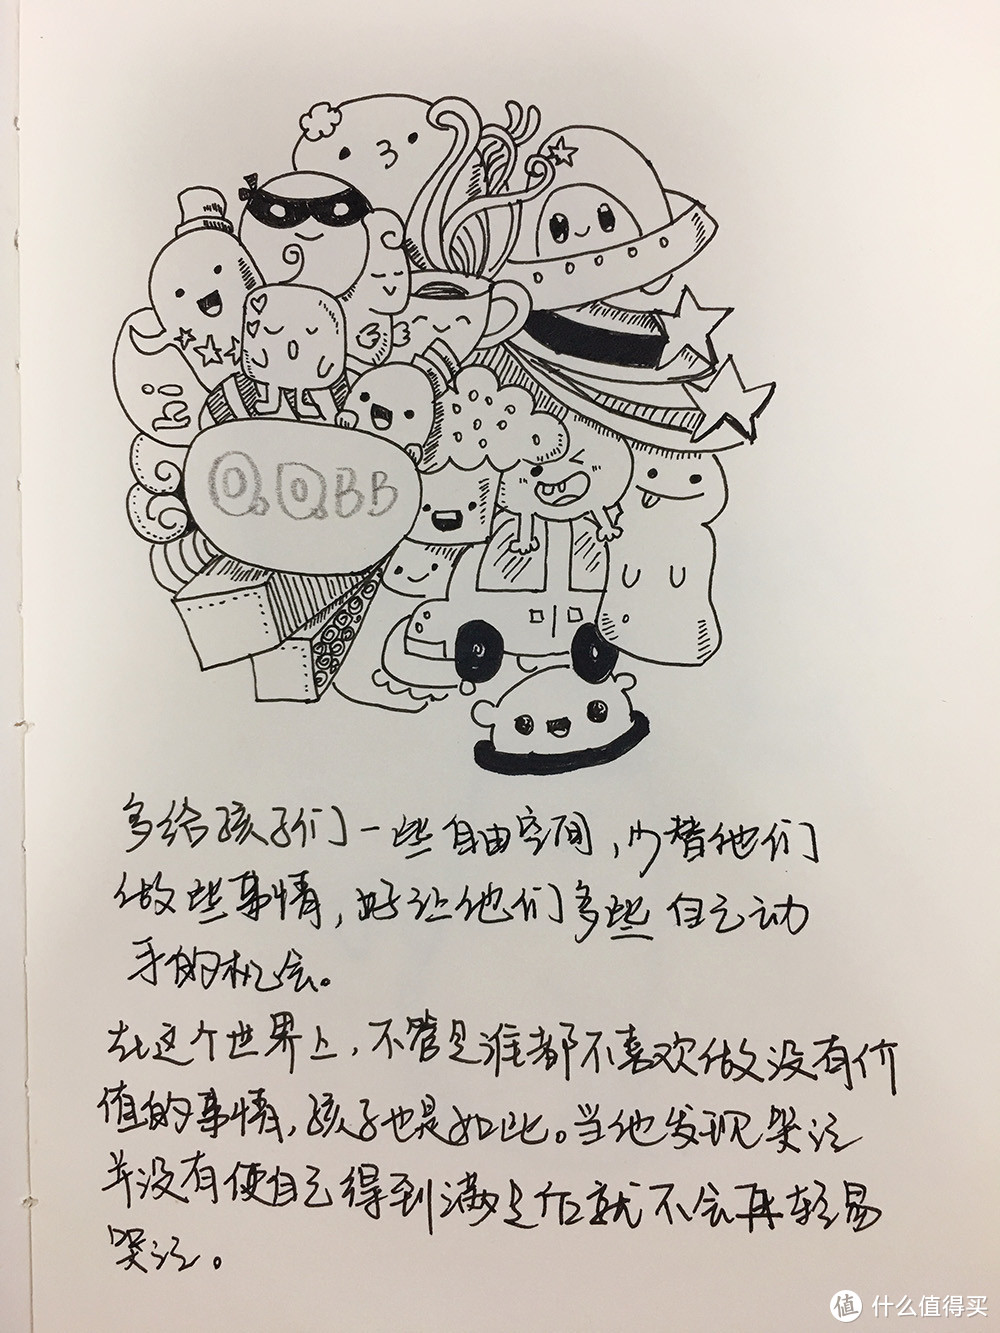 hi
Q.QBB
多给孩子们一些自由空间，少替他们
做些事情，好让他们多些自己动
手的机会。
在这个世界上，不管是谁都不喜欢做没有价
值的事情，孩子也是如此。当他发现哭泣
并没有使自己得到满足后就不会再轻易
哭泣。
值 什么值得买